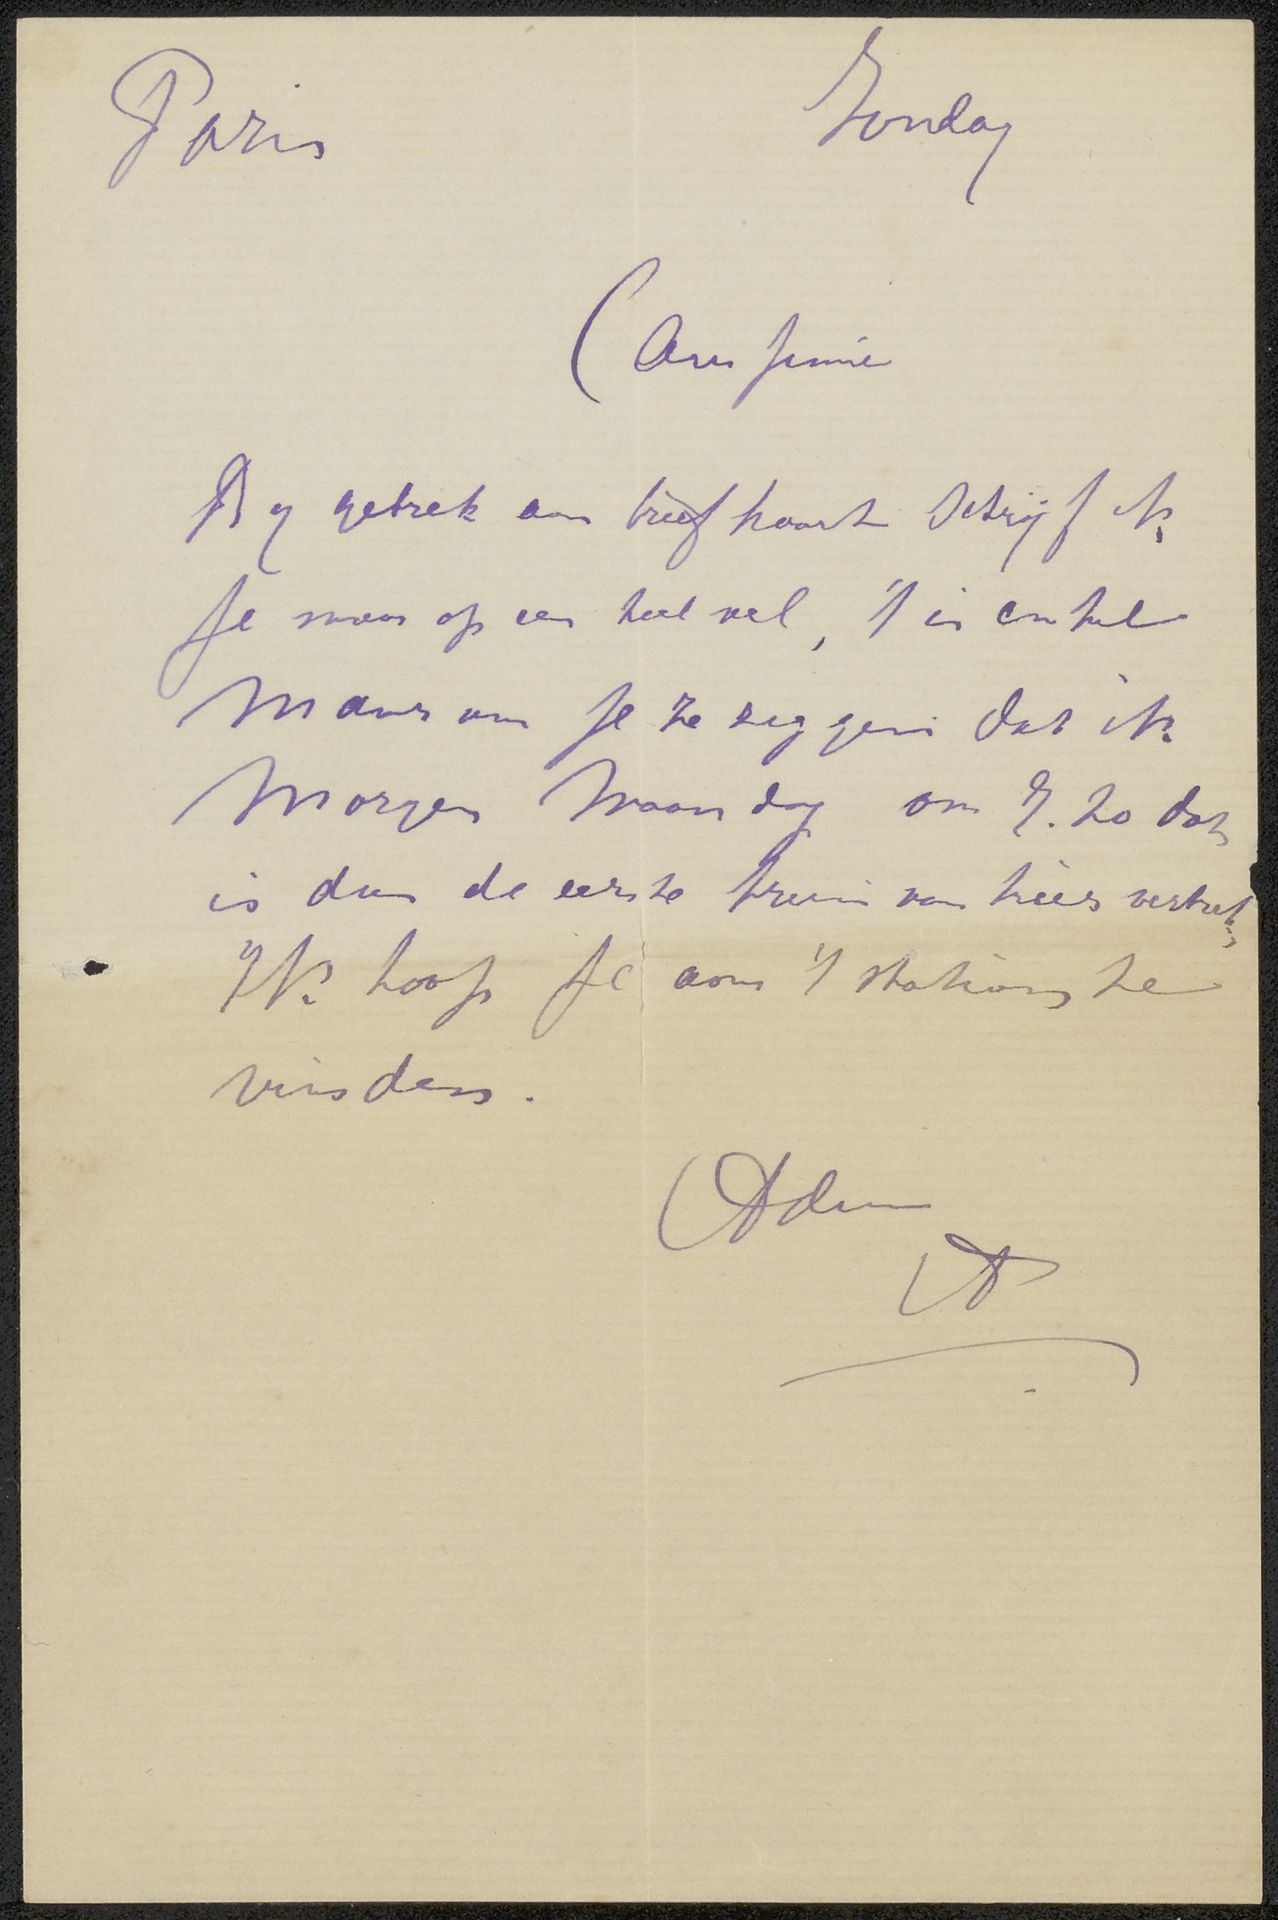 Paris Zondag
Amice
By gebrek aan briefkaart schrijf ik
je maar op een heel vel, 't is enkel
maar om je te zeggen dat ik
Morgen Maandag om 7.20 dat
is dan de eerste trein van hier vertrek
Ik hoop je aan 't station te
vinden.
Adieu
A